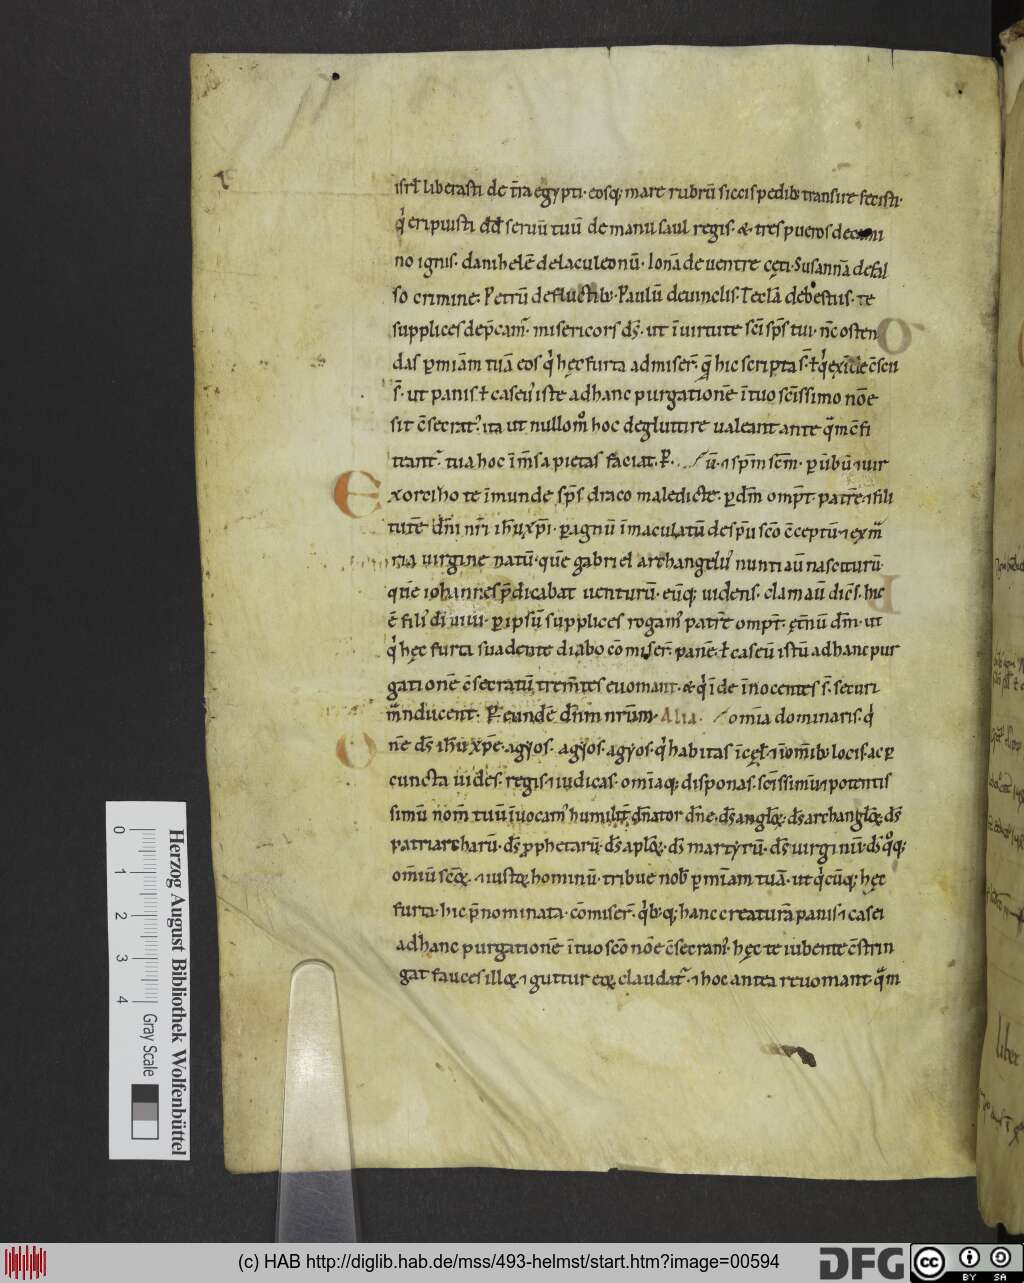 isrł liberasti de t̄ra egypti· eosq; mare rubrū siccis pedib; transire fecisti·
q̇ eripuisti dd̄ seruū tuū de manu saul regis· & tres pueros de cami
no ignis· danihelē de lacu leonū· Ionā de uentre cęti· Susannā de fal
so crimine· Petrū de fluctib;· Paulū de uinclis· Teclā de bestiis· te
supplices dep̄cam᷒ misericors ds̄· ut ī uirtute sc̄i sp̄s tui· n̄c osten
das ꝑ miām tuā eos q̇ hęc furta admiser̄· quę hic scripta s̄· ł q̇ exīde c̄scii
s̄· ut panis ł caseu᷒ iste ad hanc purgationē ī tuo sc̄issimo nōe
sit c̄secrat᷒· ita ut nullom̊ hoc degluttire ualeant ante q̄m c̄fi
teant᷒· tua hoc īm̄sa pietas faciat· P̄· ū· ⁊ sp̄m sc̄m· ꝑ ūbū ⁊ uir
Exorciho te īmunde sp̄s draco maledicte· ꝑ dm̄ omp̄t· patrē ⁊ fili
tutē dn̄i nr̄i ih̄u xp̄i· ꝑ agnū īmaculatū de sp̄u sc̄o c̄ceptū ⁊ ex m̄
ria uirgine natū· quē gabriel archangelu᷒ nuntiaū nasciturū·
quē iohannes p̄dicabat uenturū· eūq; uidens· clamaū dic̄s· hic
ē filiu᷒ di uiui· ꝑ ipsū supplices rogam᷒ patrē omp̄t· ęt̄nū dm̄· ut
q̇ hęc furta suadente diabo cōmiser̄· panē· ł caseū istū ad hanc pur
gationē c̄secratū trem̄tes euomant· & q̇ īde īnocentes s̄· securi
m̄nducent· P̄ eundē dn̄m nr̄um· Alia· omīa dominaris· q̇
Oñe ds̄ ih̄u xp̄e· agyos· agyos· agyos· q̇ habitas ī cęł· ⁊ ī om̄ib; locis· ac ꝑ
cuncta uides· regis ⁊ iudicas· omīaq; disponas· sc̄issimū ⁊ potentis
simū nom̄ tuū īuocam᷒ humilit̄ dn̄ator dn̄e· ds̄ angloꝝ· ds̄ archangloꝝ· ds̄
patriarcharū· ds̄ ꝓphetarū· ds̄ apłoꝝ· ds̄ martyrū· ds̄ uirginū· ds̄ q̊q;
om̄iū sc̄oꝝ· ⁊ iustoꝝ hominū· tribue nob̄ ꝑ miam tuā· ut q̇cūq; hęc
furta· hic p̄nominata· cōmiser̄· q̇b;q; hanc creaturā panis ⁊ casei
ad hanc purgationē ī tuo sc̄o nōe c̄secram᷒· hęc te iubente c̄strin
gat fauces illoꝝ· ⁊ guttur eoꝝ claudat᷒· ⁊ hoc antea reuomant· q̄m
Herzog August Bibliothek Wolfenbüttel
0 1 2 3 4 Gray Scale
(c) HAB http://diglib.hab.de/mss/493-helmst/start.htm?image=00594
DFG cc BY SA